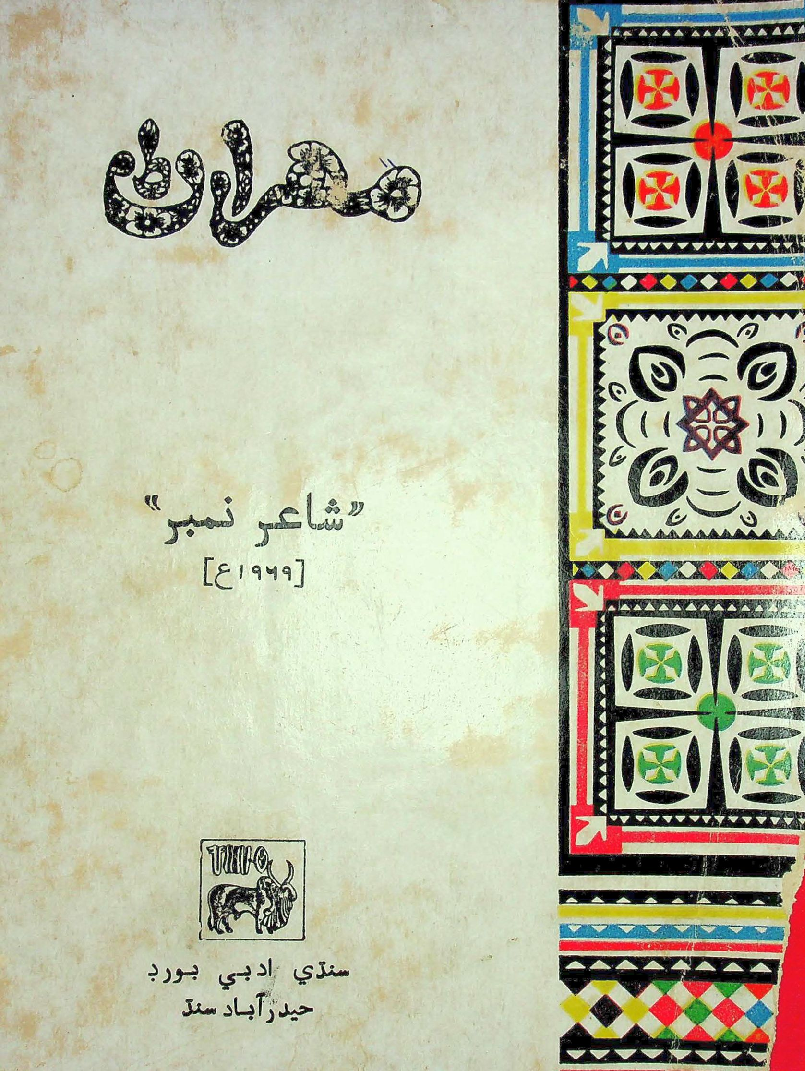 مهراڻ
”شاعر نمبر“
[۱۹۶۹ع]
سنڌي ادبي بورڊ
حيدرآباد سنڌ